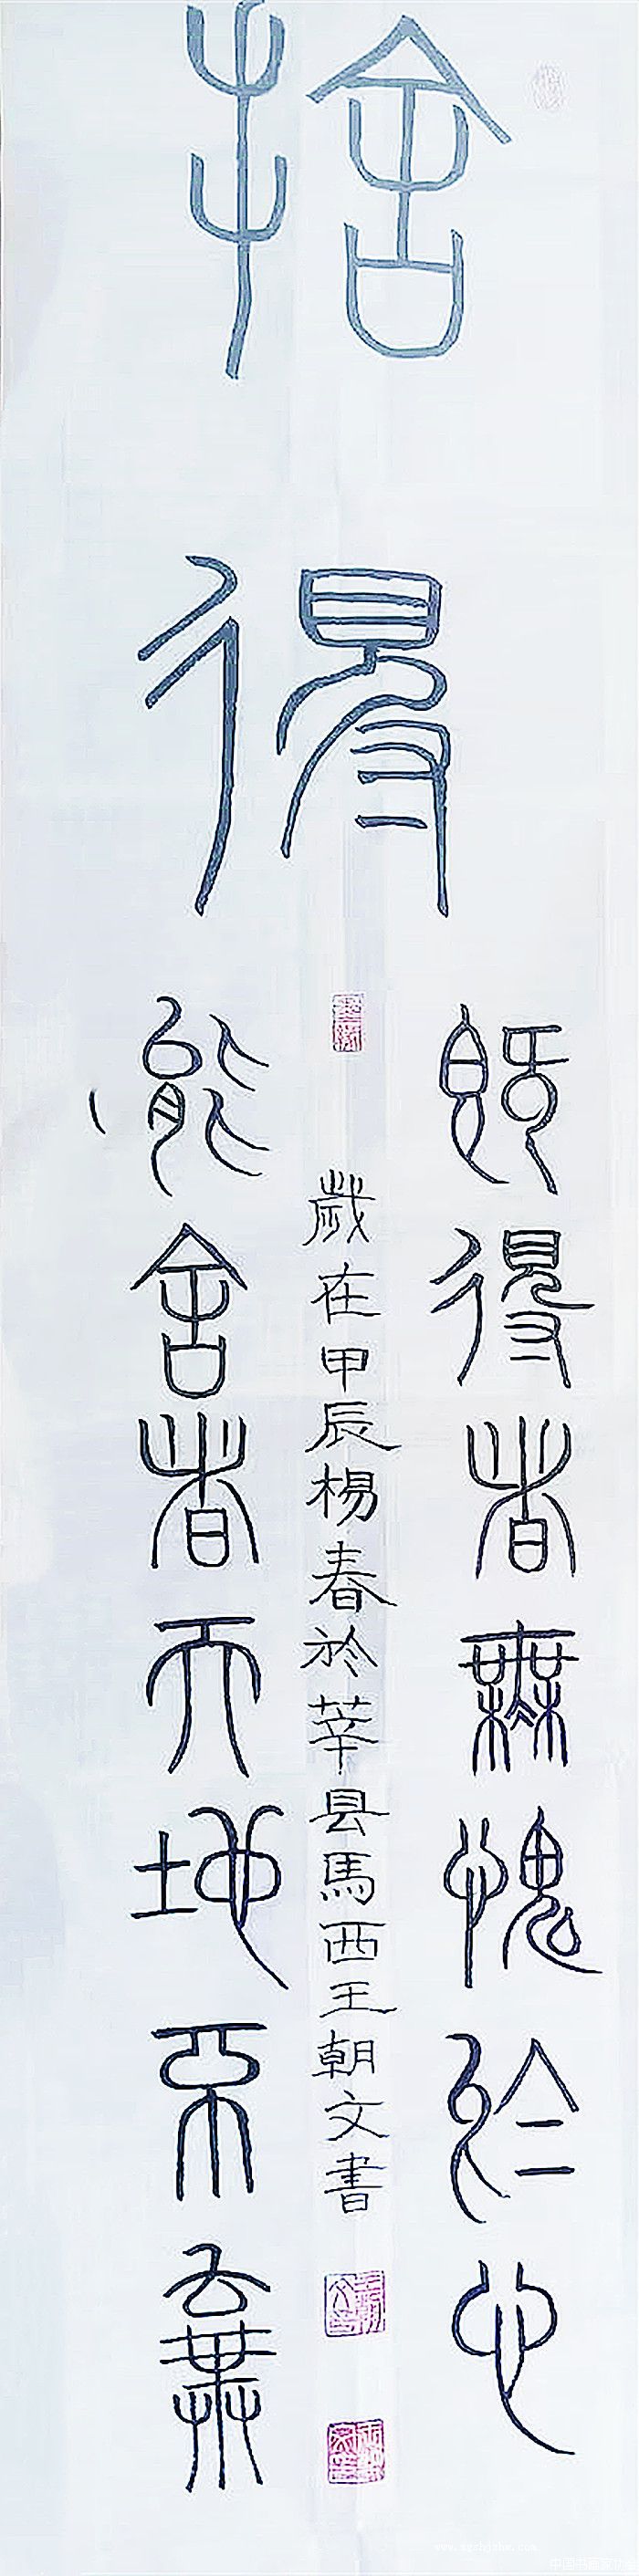 捨得
既得者無愧於心
能舍者天地不棄
歲在甲辰楊春於莘县馬西王朝文書